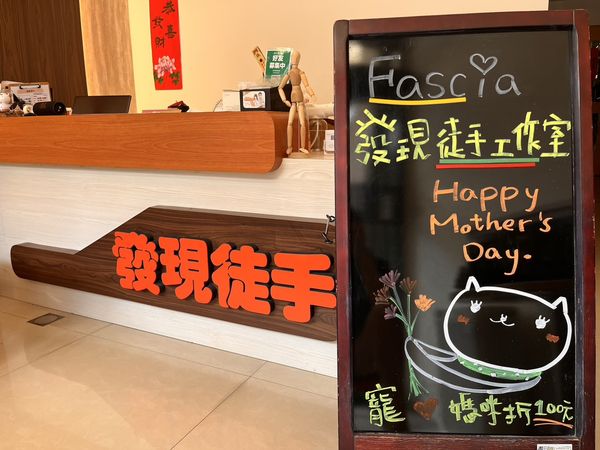 恭喜發財
好友
募集中
發現徒手
Fascia
發現徒手工作室
Happy
Mother's
Day.
寵 媽咪折100元